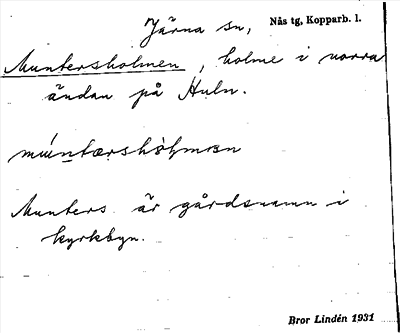 Järna sn, Nås tg, Kopparb. l.
Muntersholmen, holme i norra
ändan på Huln.
Munters är gårdsnamn i
kyrkbyn.
Bror Lindén 1931